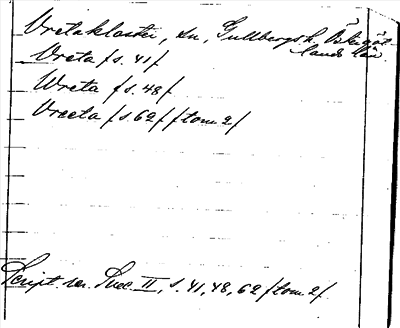 Vretakloster, sn, Gullbergs h. Östergöt-
lands län.
Vreta /s. 41/
Wreta /s. 48/
Vreeta /s. 62/ /tom 2/
Script. rer. Svec. II, s. 41, 48, 62 /tom 2/.